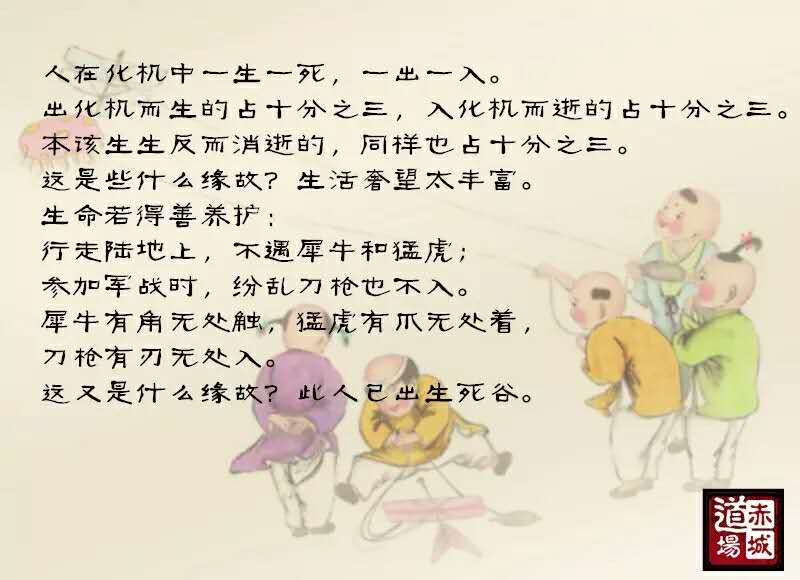 人在化机中一生一死，一出一入。
出化机而生的占十分之三，入化机而逝的占十分之三。
本该生生反而消逝的，同样也占十分之三。
这是些什么缘故？生活奢望太丰富。
生命若得善养护：
行走陆地上，不遇犀牛和猛虎；
参加军战时，纷乱刀枪也不入。
犀牛有角无处触，猛虎有爪无处着，
刀枪有刃无处入。
这又是什么缘故？此人已出生死谷。
赤城
道場